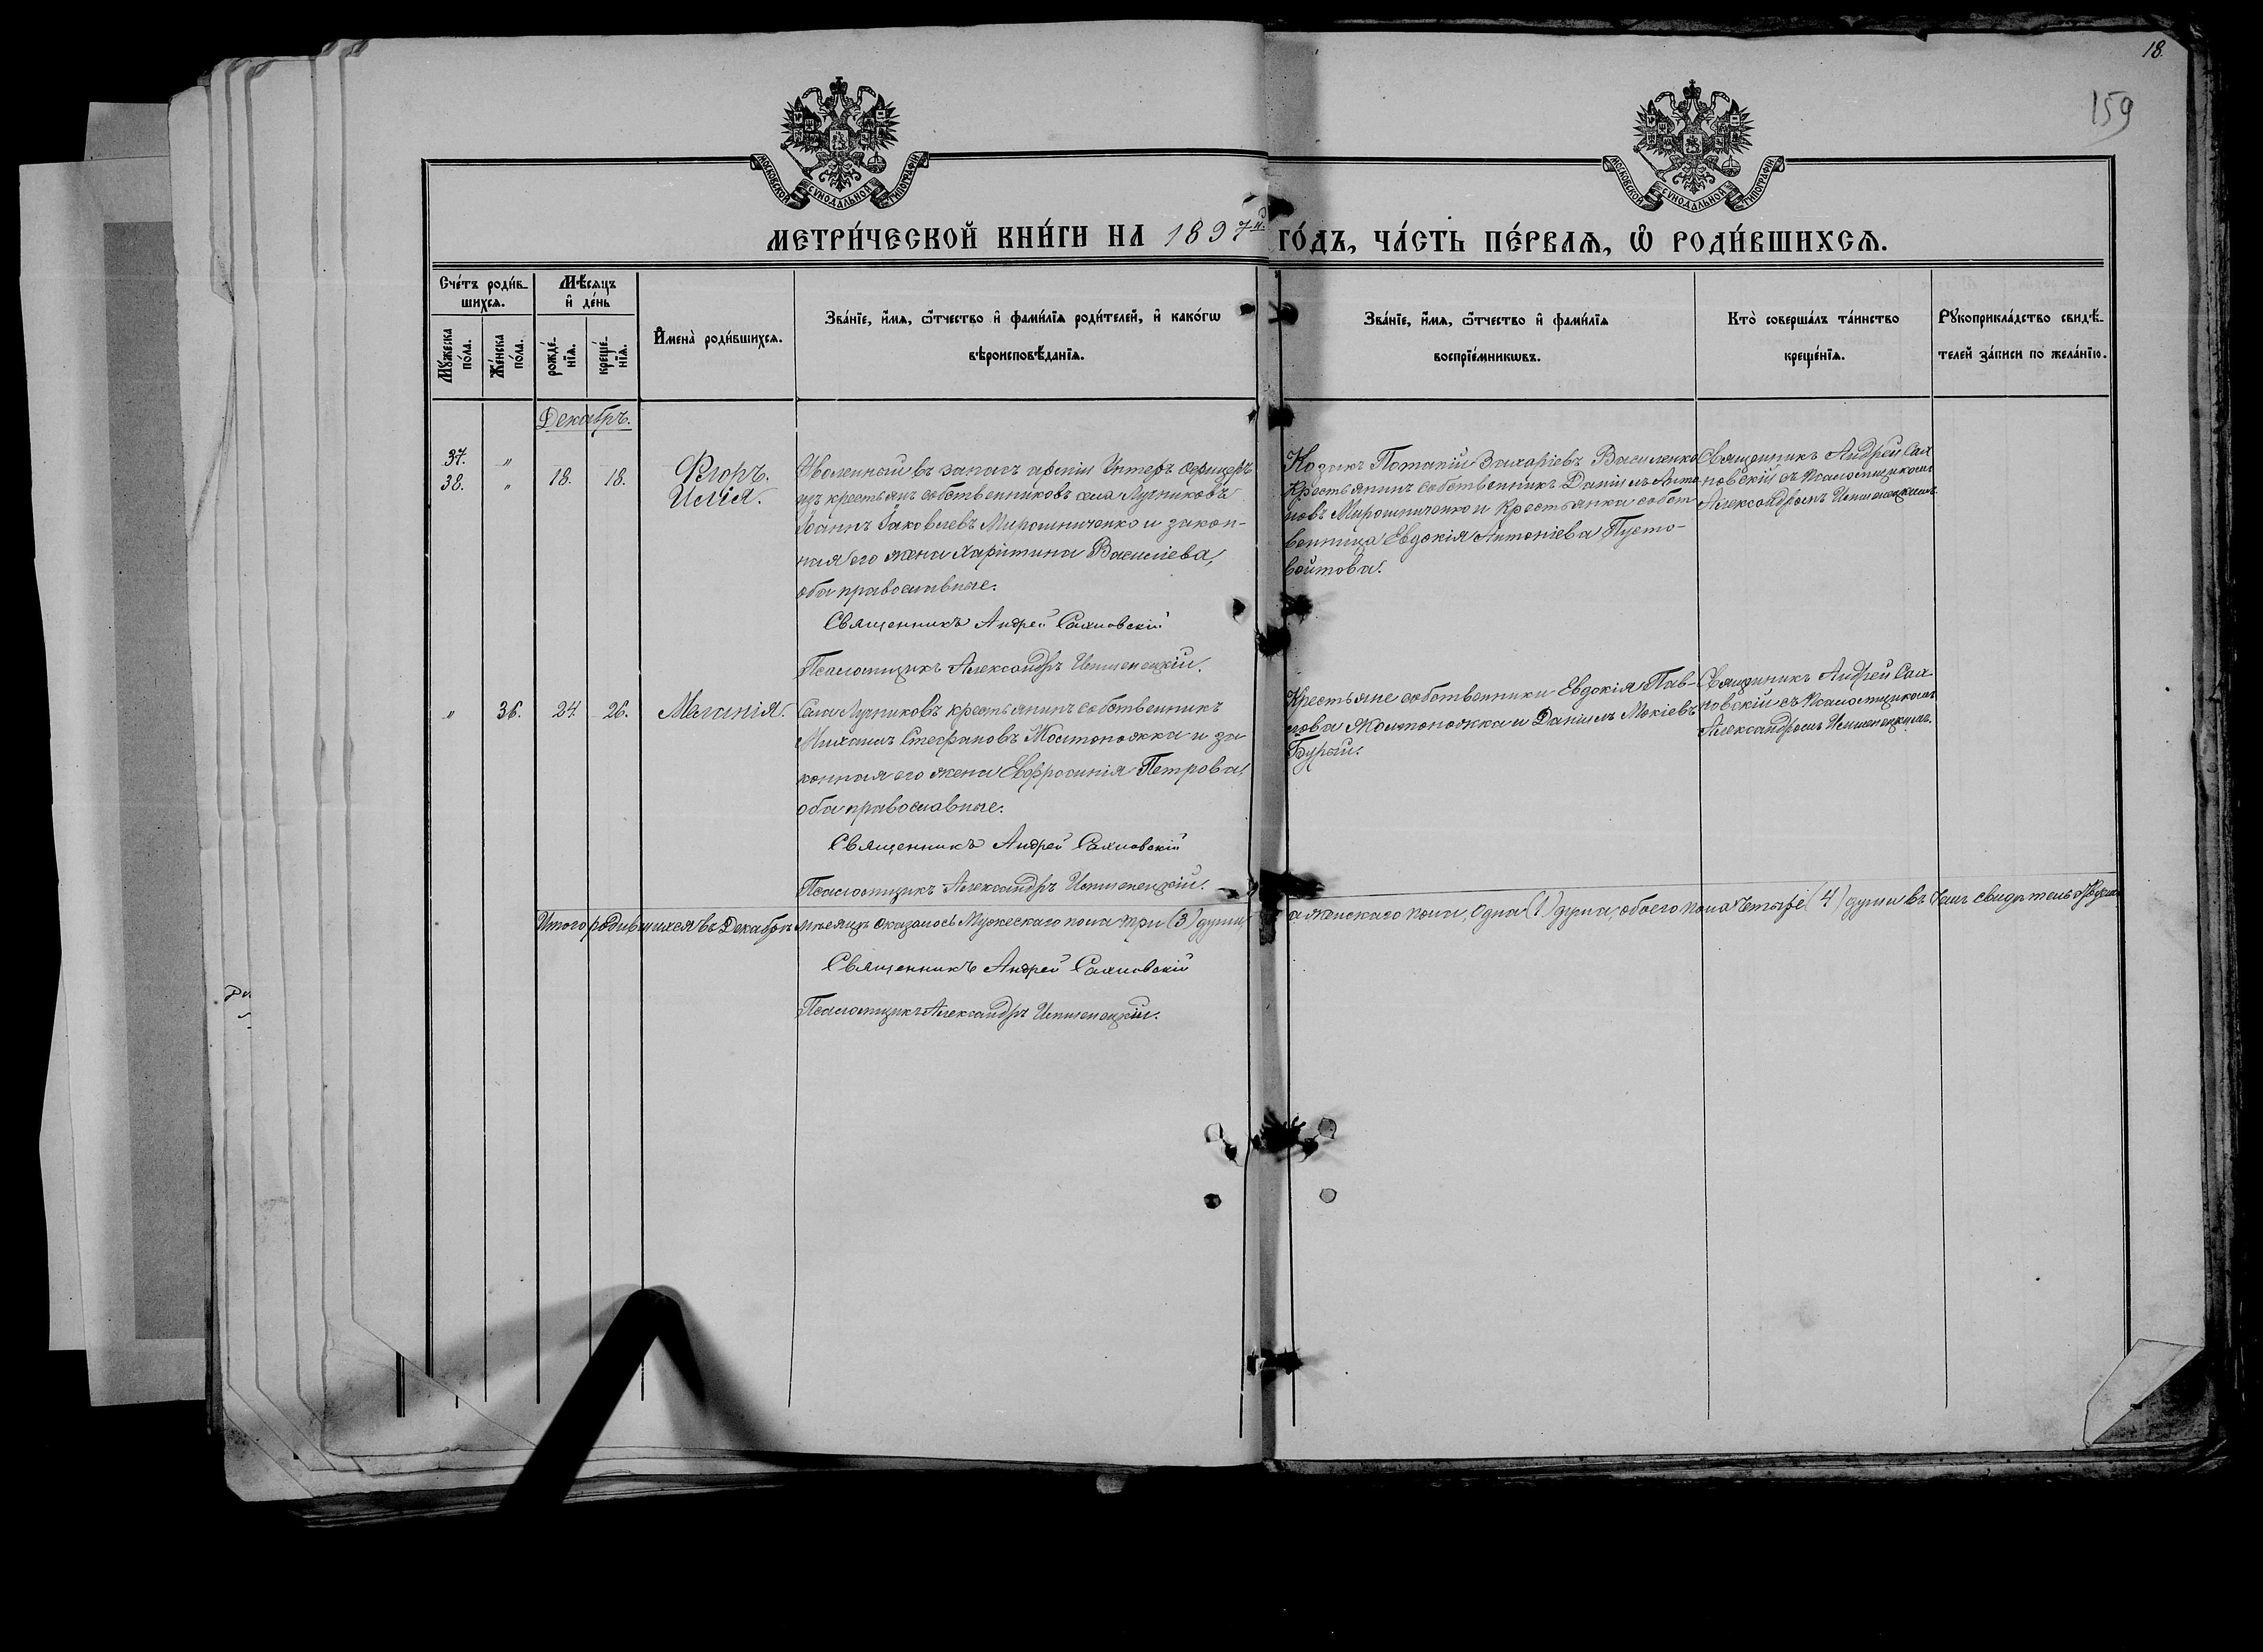 18.
159
МОСКОВСКОЙ СѴНОДАЛЬНОЙ ТИПОГРАФІИ
МОСКОВСКОЙ СѴНОДАЛЬНОЙ ТИПОГРАФІИ
МЕТРИ́ЧЕСКОЙ КНИ́ГИ НА 1897й ГО́ДЪ, ЧА́СТЬ ПЕ́РВАѦ, Ѿ РОДИ́ВШИХСѦ.
Сче́тъ роди́в-
шихсѧ.
Мѣ́сѧцъ
и҆ де́нь
Мꙋ́жеска
по́ла.
Же́нска
по́ла.
рожде́-
нїѧ.
креще́-
нїѧ.
И҆мена̀ роди́вшихсѧ.
Зва́нїе, и҆́мѧ, ѻ҆́тчество и҆ фами́лїѧ роди́телей, и҆ како́гѡ
вѣроисповѣ́данїѧ.
Зва́нїе, и҆́мѧ, ѻ҆́тчество и҆ фами́лїѧ
воспрїе́мникѡвъ.
Кто̀ соверша́лъ та́инство
креще́нїѧ.
Рꙋкоприкла́дство свидѣ́-
телей за́писи по жела́нїю.
Декабрь.
37. "
38. " 18. 18.
Флоръ.
Илія.
Уволенный въ запасъ арміи Унтеръ Офицеръ
изъ крестьянъ собственниковъ села Лучниковъ
Іоаннъ Іаковлевъ Мирошниченко и закон-
ная его жена Харитина Василіева,
оба православные.
Священникъ Андрей Сахновскій
Псаломщикъ Александръ
Козакъ Потапій Захаріевъ Василенко
Крестьянинъ собственникъ Даніилъ Анто-
новъ Мирошниченко и Крестьянка собст-
венница Евдокія Антоніева Пусто-
войтова.
Священникъ Андрей Сах-
новскій съ Псаломщикомъ
Александромъ
" 36. 24. 26. Меланія.
Села Лучниковъ крестьянинъ собственникъ
Михаилъ Стефановъ Жовтоножка и за-
конная его жена Евфросинія Петрова,
оба православные.
Священникъ Андрей Сахновскій
Псаломщикъ Александръ
Крестьяне собственники Евдокія Пав-
лова Жовтоножка и Даніилъ Мокіевъ
Бурый.
Священникъ Андрей Сах-
новскій съ Псаломщикомъ
Александромъ
Итого родившихся въ Декабрѣ мѣсяцѣ оказалось Мужескаго пола три (3) души, а женскаго пола, одна (1) душа, обоего пола четыре (4) души въ чемъ свидѣтельствуемъ
Священникъ Андрей Сахновскій
Псаломщикъ Александръ